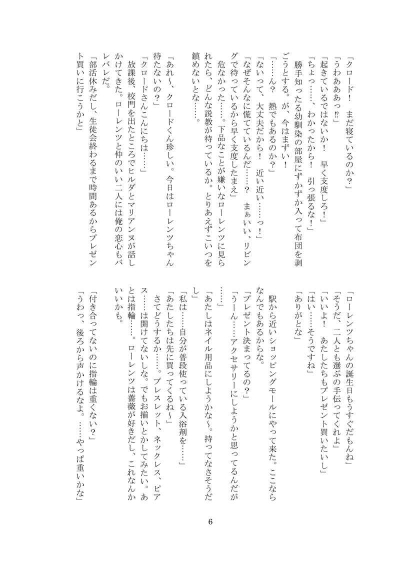 「クロード！　まだ寝ているのか？」
「うわああっ⁉」
「起きているではないか！　早く支度しろ！」
「ちょっ……、わかったから！　引っ張るな！」
　勝手知ったる幼馴染の部屋にずかずか入って布団を剥
ごうとする。が、今はまずい！
「……ん？　熱でもあるのか？」
「ないって、大丈夫だから！　近い近い……っ！」
「なぜそんなに慌てているんだ……？　まぁいい、リビン
グで待っているから早く支度したまえ」
　危なかった……。下品なことが嫌いなローレンツに見ら
れたら、どんな説教が待っているか。とりあえずこいつを
鎮めないとな……。
「あれ～、クロードくん珍しい。今日はローレンツちゃん
待たないの？」
「クロードさんこんにちは……」
　放課後、校門を出たところでヒルダとマリアンヌが話し
かけてきた。ローレンツと仲のいい二人には俺の恋心もバ
レバレだ。
「部活休みだし、生徒会終わるまで時間あるからプレゼン
ト買いに行こうかと」
「ローレンツちゃんの誕生日もうすぐだもんね」
「そうだ、二人とも選ぶの手伝ってくれよ」
「いいよ！　あたしたちもプレゼント買いたいし」
「はい……そうですね」
「ありがとな」
　駅から近いショッピングモールにやって来た。ここなら
なんでもあるからな。
「プレゼント決まってるの？」
「うーん……アクセサリーにしようかと思ってるんだが」
「あたしはネイル用品にしようかな～。持ってなさそうだ
し」
「私は……自分が普段使っている入浴剤を……」
「あたしたちは先に買ってくるね～」
　さてどうするか……。ブレスレット、ネックレス、ピア
ス……は開けてないしな。でもお揃いとかしてみたい。あ
とは指輪……。ローレンツは薔薇が好きだし、これなんか
いいかも。
「付き合ってないのに指輪は重くない？」
「うわっ、後ろから声かけるなよ。……やっぱ重いかな」
6